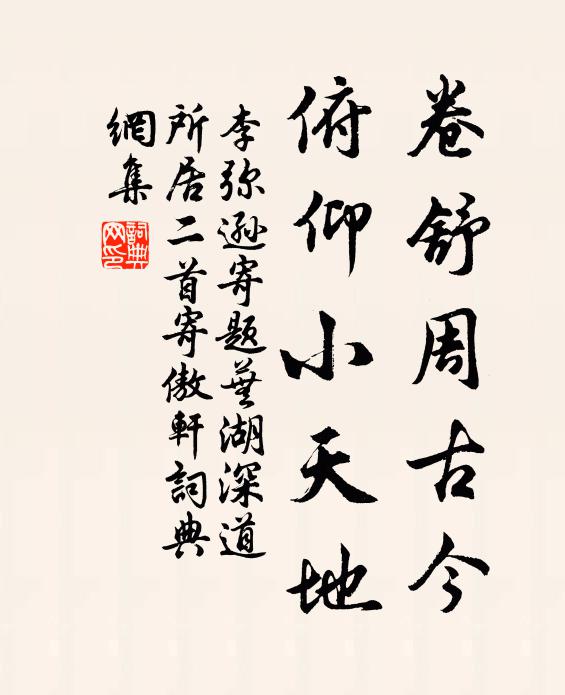 卷舒周古今
俯仰小天地
李弥遜寄题蕪湖深道
所居二首寄傲軒詞典
網集
詞典
网印